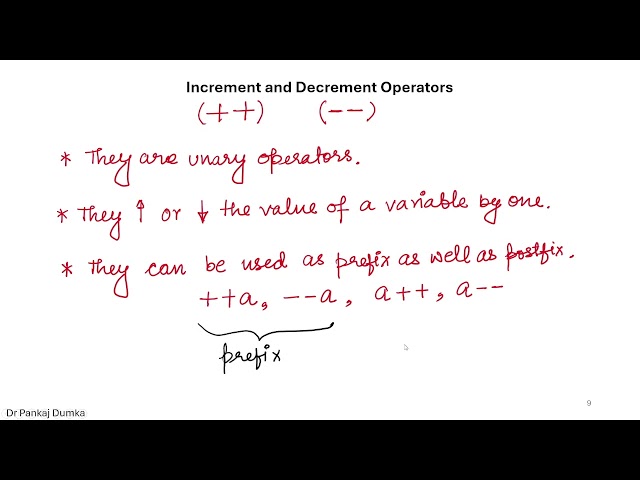 Increment and Decrement Operators
(++) (--)
* They are unary operators.
* They ↑ or ↓ the value of a variable by one.
* They can be used as prefix as well as postfix.
++a, --a, a++, a--
prefix
9
Dr Pankaj Dumka